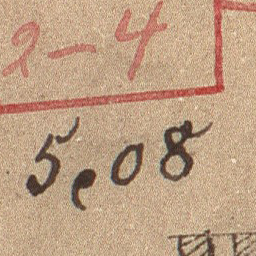 2-4
5,08